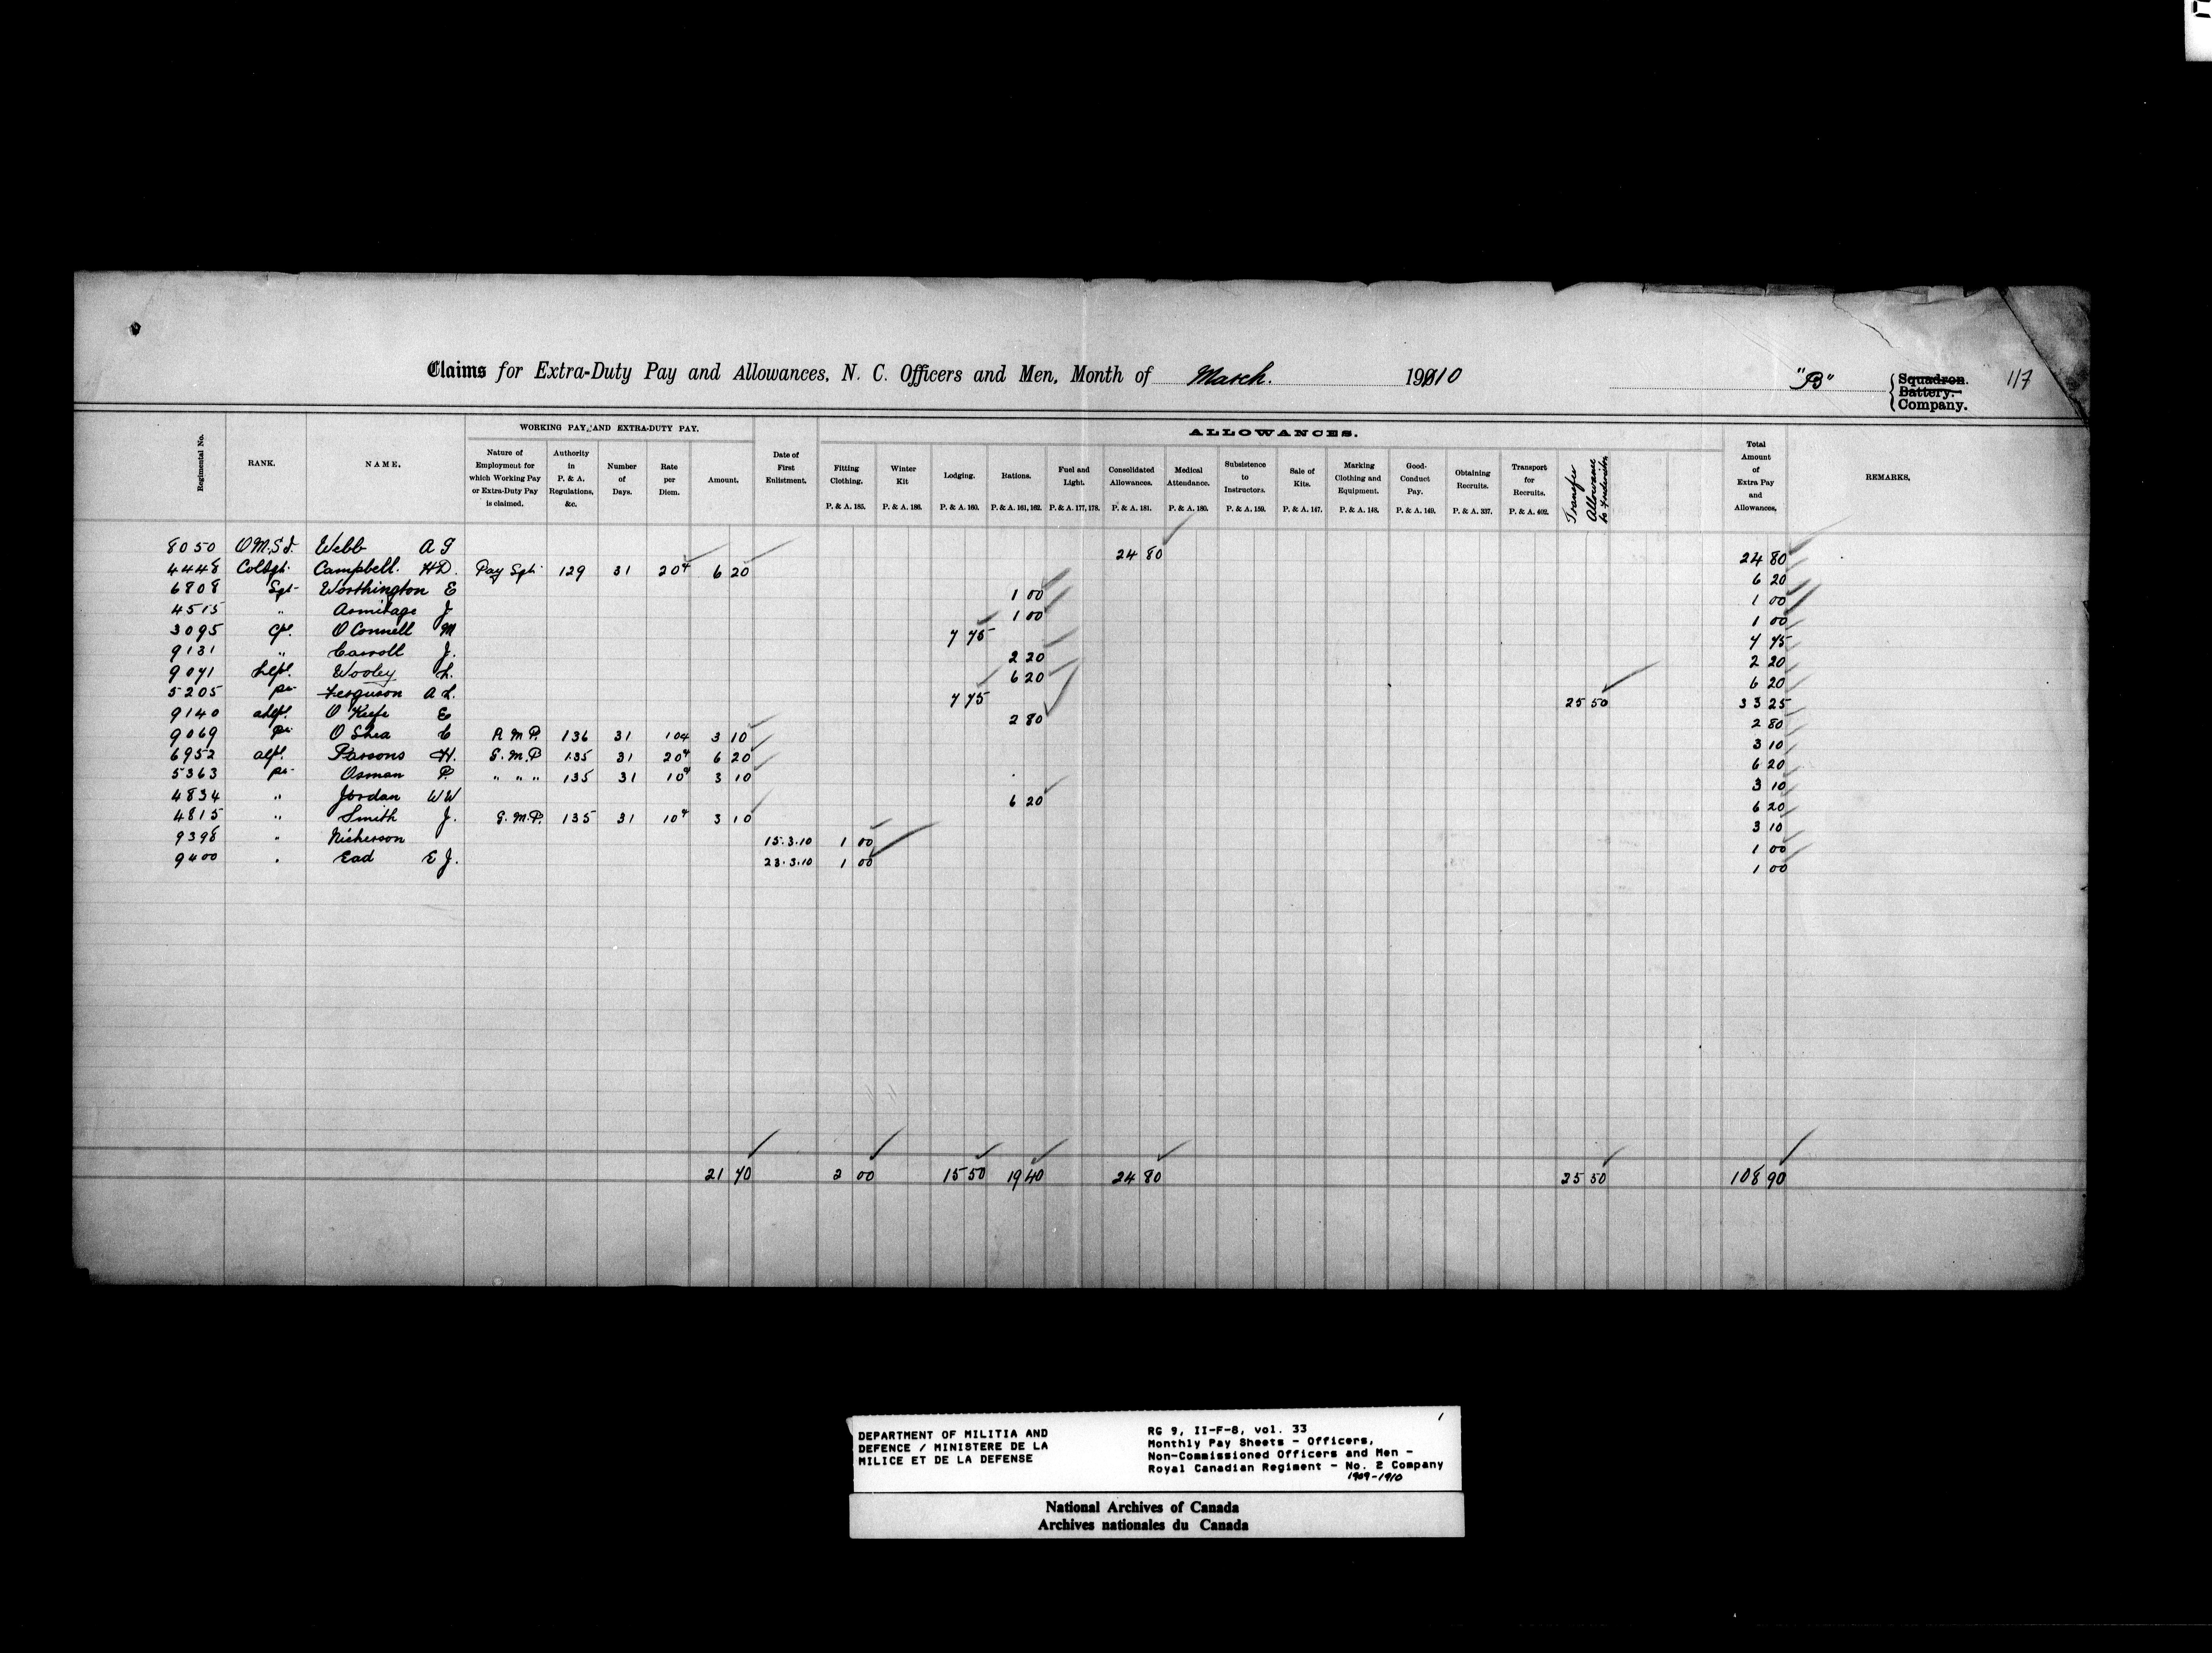 Claims for Extra-Duty Pay and Allowances, N. C. Officers and Men, Month of March. 1910 "B" Squadron. Battery. Company. 117
WORKING PAY, AND EXTRA-DUTY PAY. ALLOWANCES.
Regimental No. RANK. NAME. Nature of Employment for which Working Pay or Extra-Duty Pay is claimed. Authority in P. & A. Regulations, &c. Number of Days. Rate per Diem. Amount. Date of First Enlistment. Fitting Clothing. P. & A. 185. Winter Kit P. & A. 186. Lodging. P. & A. 160. Rations. P. & A. 161, 162. Fuel and Light. P. & A. 177, 178. Consolidated Allowances. P. & A. 181. Medical Attendance. P. & A. 180. Subsistence to Instructors. P. & A. 159. Sale of Kits. P. & A. 147. Marking Clothing and Equipment. P. & A. 148. Good-Conduct Pay. P. & A. 149. Obtaining Recruits. P. & A. 337. Transport for Recruits. P. & A. 402. Transfer Allowance to Fredericton Total Amount of Extra Pay and Allowances. REMARKS.
8050 Q.M.S.I. Webb A G 24 80 24 80
4448 Col Sgt. Campbell. H D. Pay Sgt. 129 31 20¢ 6 20 6 20
6808 Sgt Worthington E 1 00 1 00
4515 " Armitage J 1 00 1 00
3095 Cpl. O Connell M 7 75 7 75
9131 " Carroll J. 2 20 2 20
9071 Lcpl. Wooley L. 6 20 6 20
5205 pr Ferguson A L. 7 75 25 50 33 25
9140 alcpl. O Keefe E 2 80 2 80
9069 pr O Shea C R M P. 136 31 10¢ 3 10 3 10
6952 alcpl. Parsons H. G. M. P 135 31 20¢ 6 20 6 20
5363 pr Osman P. " " " 135 31 10¢ 3 10 3 10
4834 " Jordan W W 6 20 6 20
4815 " Smith J. G. M. P. 135 31 10¢ 3 10 3 10
9398 " Nickerson 15.3.10 1 00 1 00
9400 " Ead E J. 23.3.10 1 00 1 00
21 70 2 00 15 50 19 40 24 80 25 50 108 90
1
DEPARTMENT OF MILITIA AND
DEFENCE / MINISTERE DE LA
MILICE ET DE LA DEFENSE
RG 9, II-F-8, vol. 33
Monthly Pay Sheets - Officers,
Non-Commissioned Officers and Men -
Royal Canadian Regiment - No. 2 Company
1909-1910
National Archives of Canada
Archives nationales du Canada